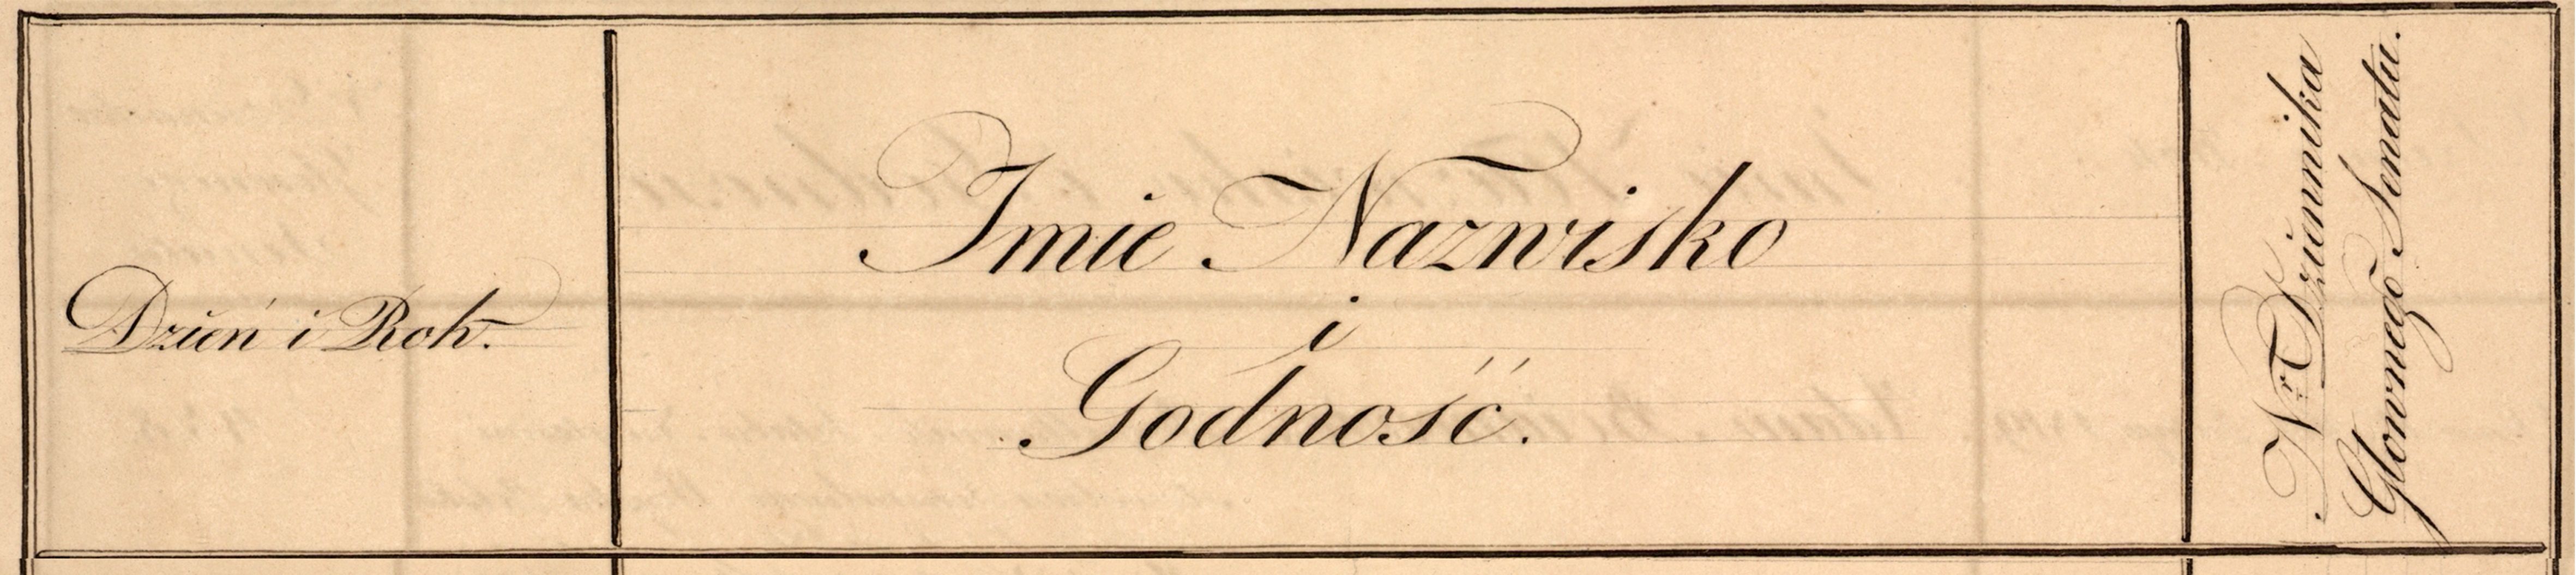 Dzień i Rok.
Imie Nazwisko
i
Godność.
Nr Dziennika
Głownego Senatu.